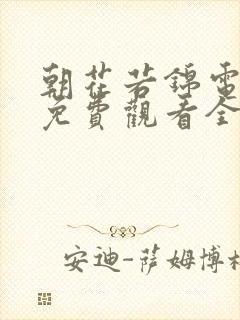 朝花若錦電
免費觀看全
安迪-萨姆博格